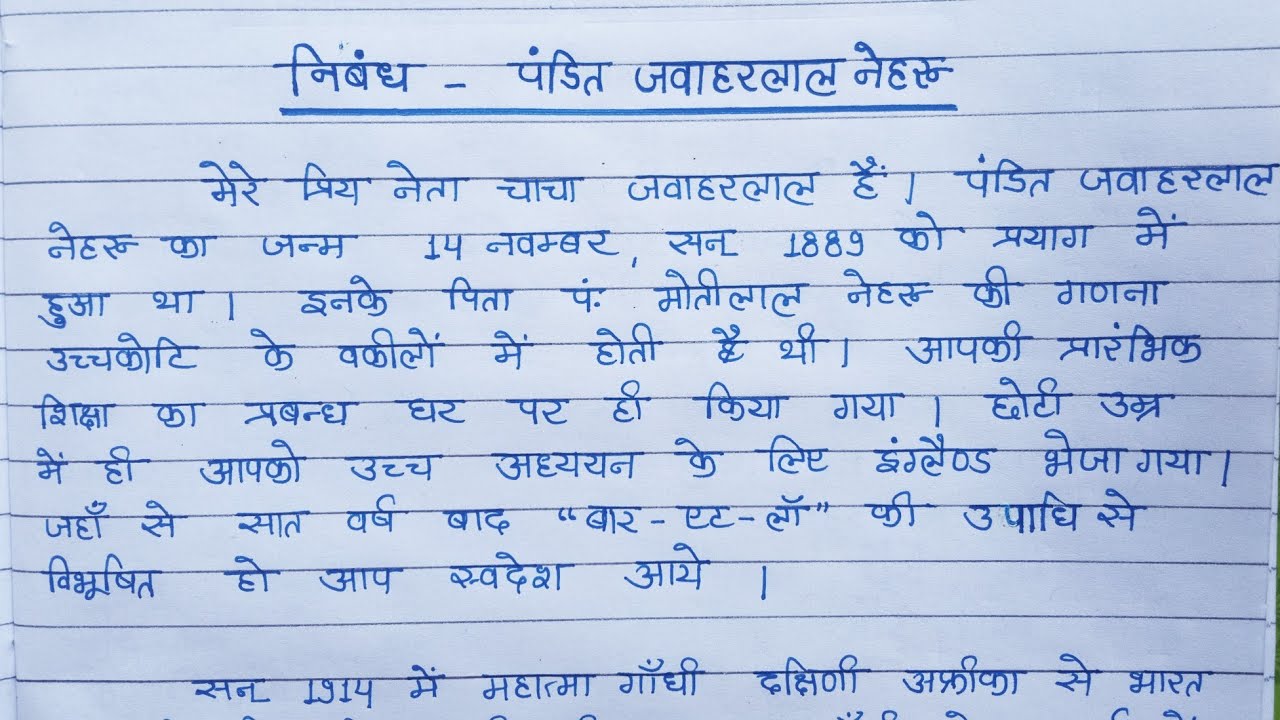 निबंध - पंडित जवाहरलाल नेहरू
मेरे प्रिय नेता चाचा जवाहरलाल हैं। पंडित जवाहरलाल
नेहरू का जन्म 14 नवम्बर, सन् 1889 को प्रयाग में
हुआ था। इनके पिता पं. मोतीलाल नेहरू की गणना
उच्चकोटि के वकीलों में होती थी। आपकी प्रारंभिक
शिक्षा का प्रबन्ध घर पर ही किया गया। छोटी उम्र
में ही आपको उच्च अध्ययन के लिए इंग्लैण्ड भेजा गया।
जहाँ से सात वर्ष बाद “बार-एट-लॉ” की उपाधि से
विभूषित हो आप स्वदेश आये।
सन् 1914 में महात्मा गाँधी दक्षिणी अफ्रीका से भारत